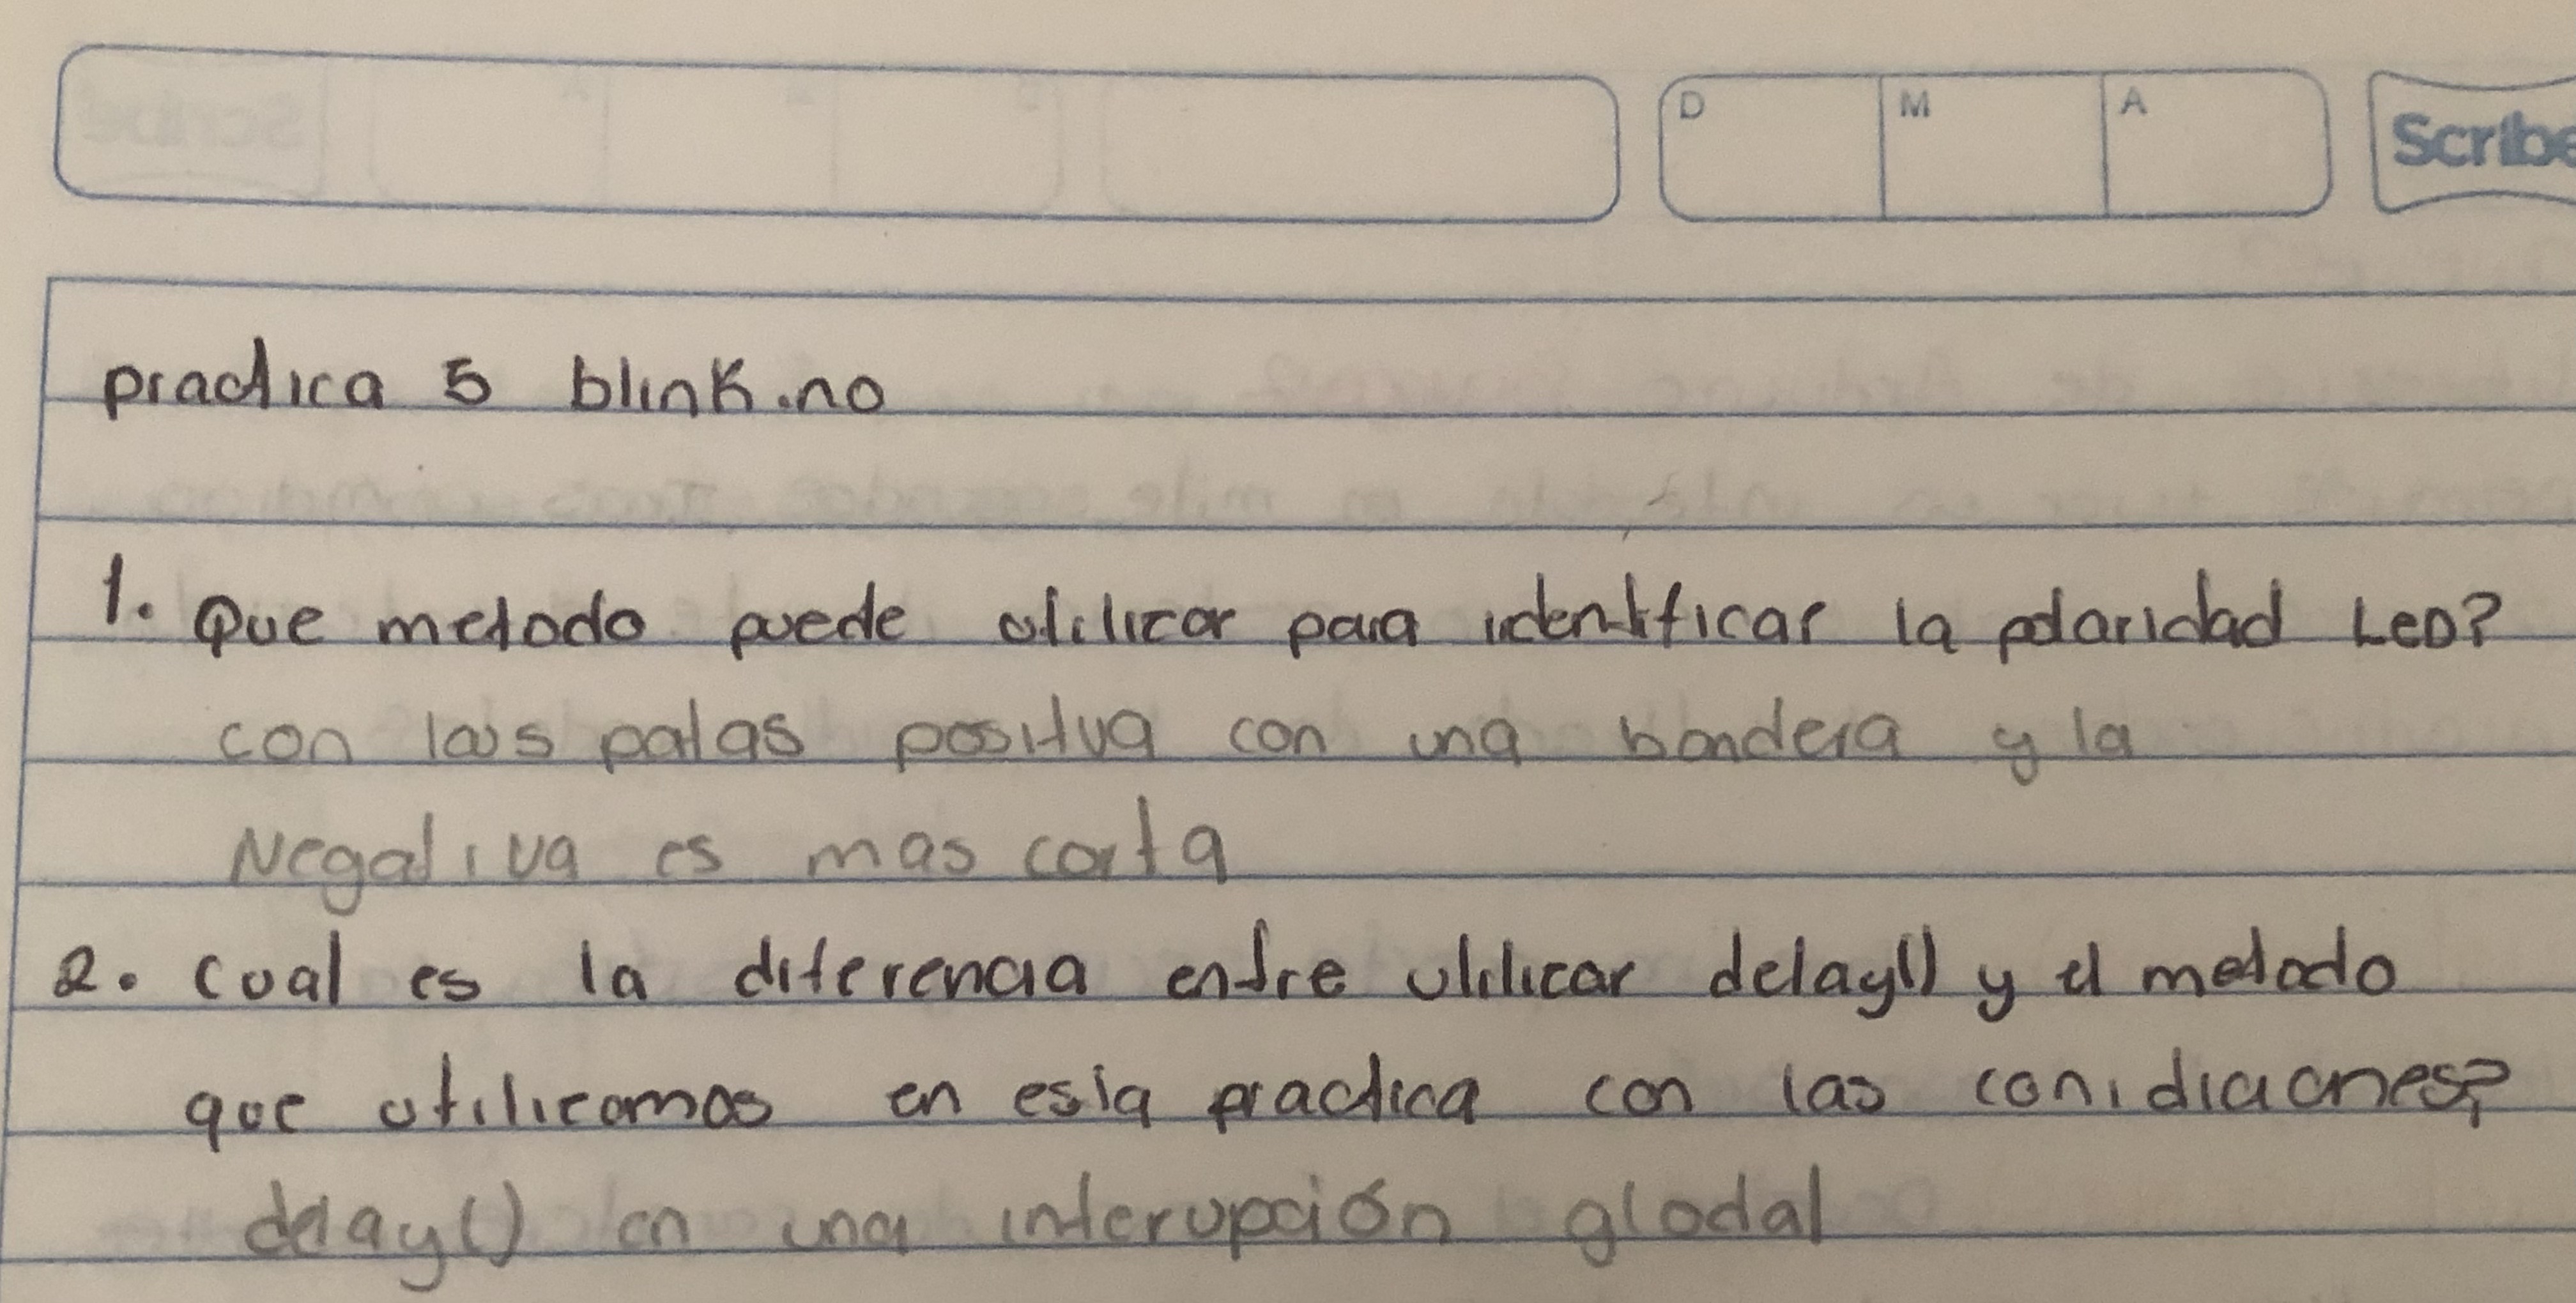 D M A Scribe
practica 5 blink.no
1. Que metodo puede utilizar para identificar la polaridad LED?
con las patas positiva con una bandera y la
Negativa es mas corta
2. Cual es la diferencia entre utilizar delay() y el metodo
que utilizamos en esta practica con las conidiciones?
delay() en una interupción glodal